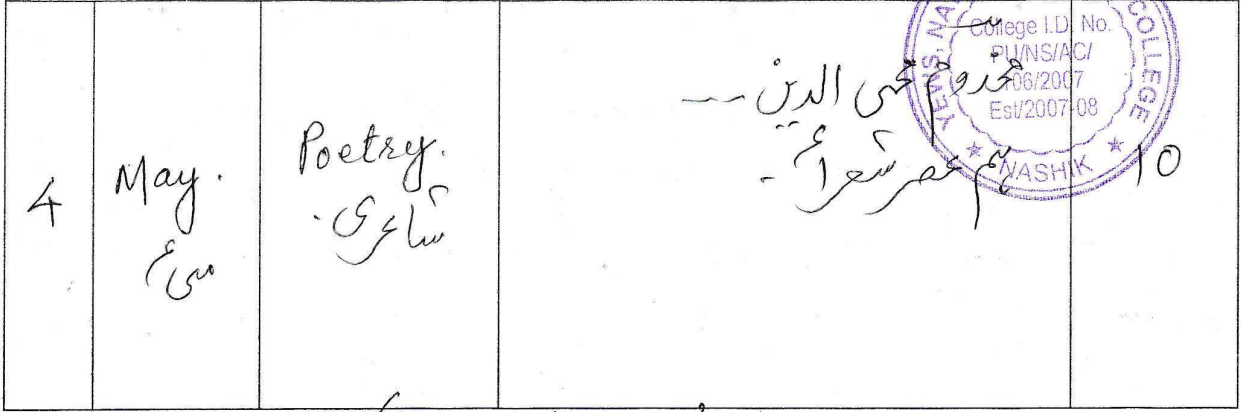 4
May.
مئی
Poetry.
شاعری.
مخدوم محی الدین --
ہم عصر شعراء -
10
College I.D. No.
PU/NS/AC/
106/2007
Est/2007-08
YEWS, NA
COLLEGE
★ NASHIK ★